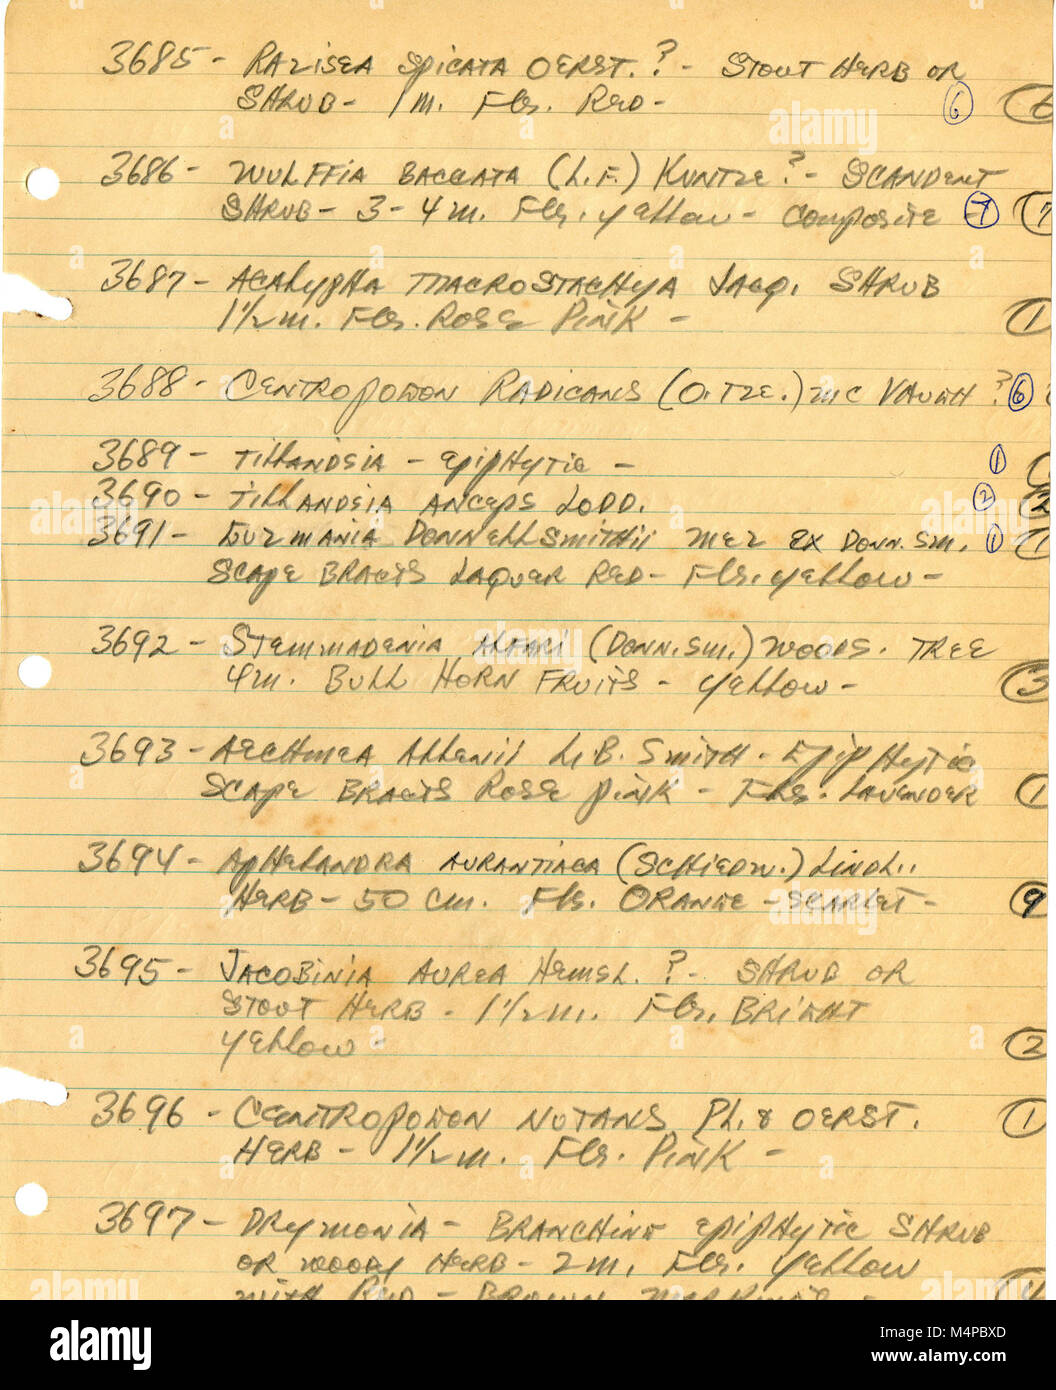 3685 - RAZISEA SPICATA OERST. ? - STOUT HERB OR
SHRUB - 1 M. FLS. RED - 6 6
3686 - WULFFIA BACCATA (L.F.) KUNTZE ? - SCANDENT
SHRUB - 3 - 4 M. FLS. YELLOW - COMPOSITE - 7 7
3687 - ACALYPHA MACROSTACHYA JACQ. SHRUB
1 1/2 M. FLS. ROSE PINK - 1
3688 - CENTROPOGON RADICANS (O.TZE.) MC VAUGH ? 6
3689 - TILLANDSIA - EPIPHYTIC - 1
3690 - TILLANDSIA ANCEPS LODD. 2 2
3691 - GUZMANIA DONNELLSMITHII MEZ EX DONN. SM. 1 1
SCAPE BRACTS LAQUER RED - FLS. YELLOW -
3692 - STEMMADENIA ALFARI (DONN. SM.) WOODS. TREE
4 M. BULL HORN FRUITS - YELLOW - 3
3693 - AECHMEA ALLENII L.B. SMITH - EPIPHYTIC
SCAPE BRACTS ROSE PINK - FLS. LAVENDER 1
3694 - APHELANDRA AURANTIACA (SCHIEDW.) LINDL.
HERB - 50 CM. FLS. ORANGE - SCARLET - 9
3695 - JACOBINIA AUREA HEMSL. ? - SHRUB OR
STOUT HERB - 1 1/2 M. FLS. BRIGHT
YELLOW - 2
3696 - CENTROPOGON NUTANS PL. & OERST. 1
HERB - 1 1/2 M. FLS. PINK -
3697 - DRYMONIA - BRANCHING EPIPHYTIC SHRUB
OR WOODY HERB - 2 M. FLS. YELLOW
WITH RED - BROWN MARKINGS - 4
alamy
Image ID: M4PBXD
www.alamy.com